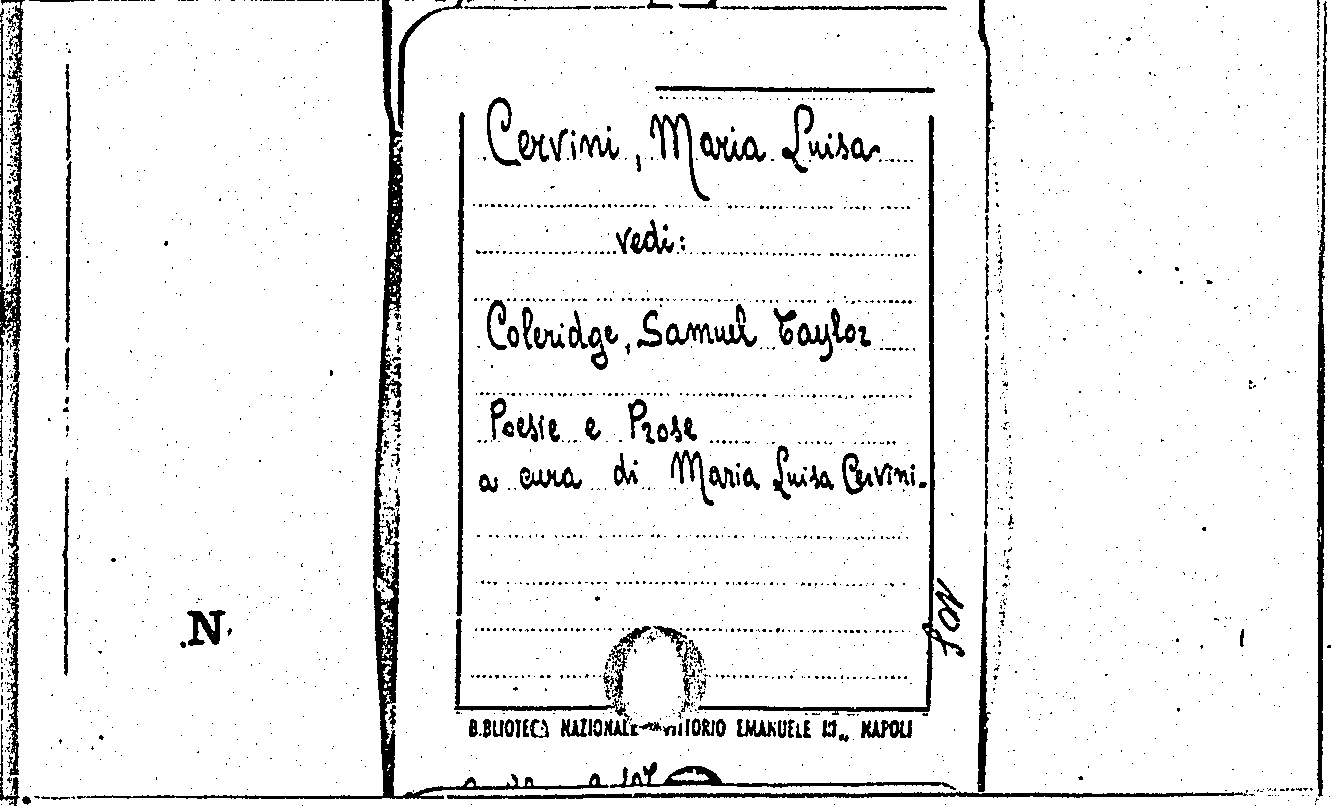 Cervini, Maria Luisa
vedi:
Coleridge, Samuel Taylor
Poesie e Prose
a cura di Maria Luisa Cervini.
N
BIBLIOTECA NAZIONALE VITTORIO EMANUELE III„ NAPOLI